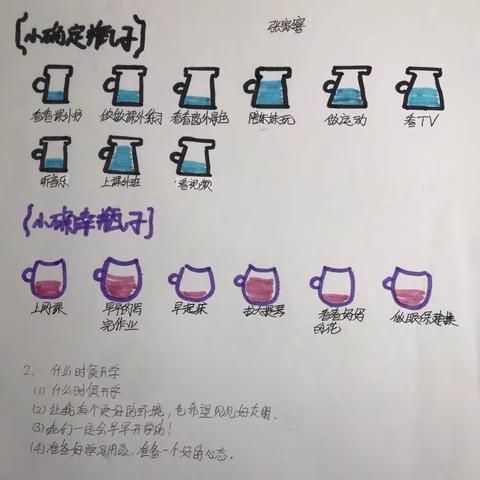 {小确定瓶子}
张家睿
看看课外书 做做课外练习 看看窗外景色 陪妹妹玩 做运动 看TV
听音乐 上课外班 看视频
{小确幸瓶子}
上网课 早早的写完作业 早起床 拉大提琴 看看好好的花 做眼保健操
2. 什么时候开学
(1) 什么时候开学
(2) 让我有个更好的环境，也希望见见好友朋。
(3) 我们一定会早早开学的！
(4) 准备好学习用品，准备一个好的心态。